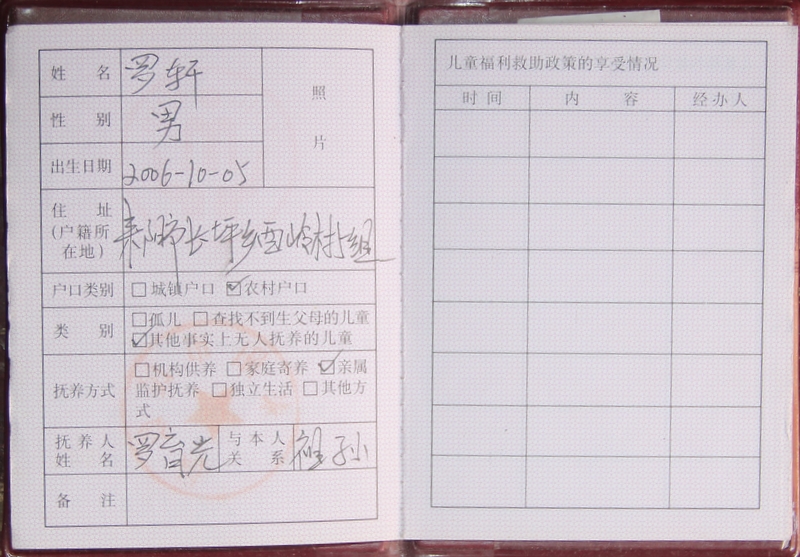 姓 名 罗轩
照
片
性 别 男
出生日期 2006-10-05
住 址
(户籍所
在地)
耒阳市长坪乡酉岭村1组
户口类别 □城镇户口 ☑农村户口
类 别 □孤儿 □查找不到生父母的儿童
☑其他事实上无人抚养的儿童
抚养方式 □机构供养 □家庭寄养 ☑亲属
监护抚养 □独立生活 □其他方
式
抚养人
姓 名
罗育光
与本人
关 系
祖孙
备 注
儿童福利救助政策的享受情况
时间 内 容 经办人